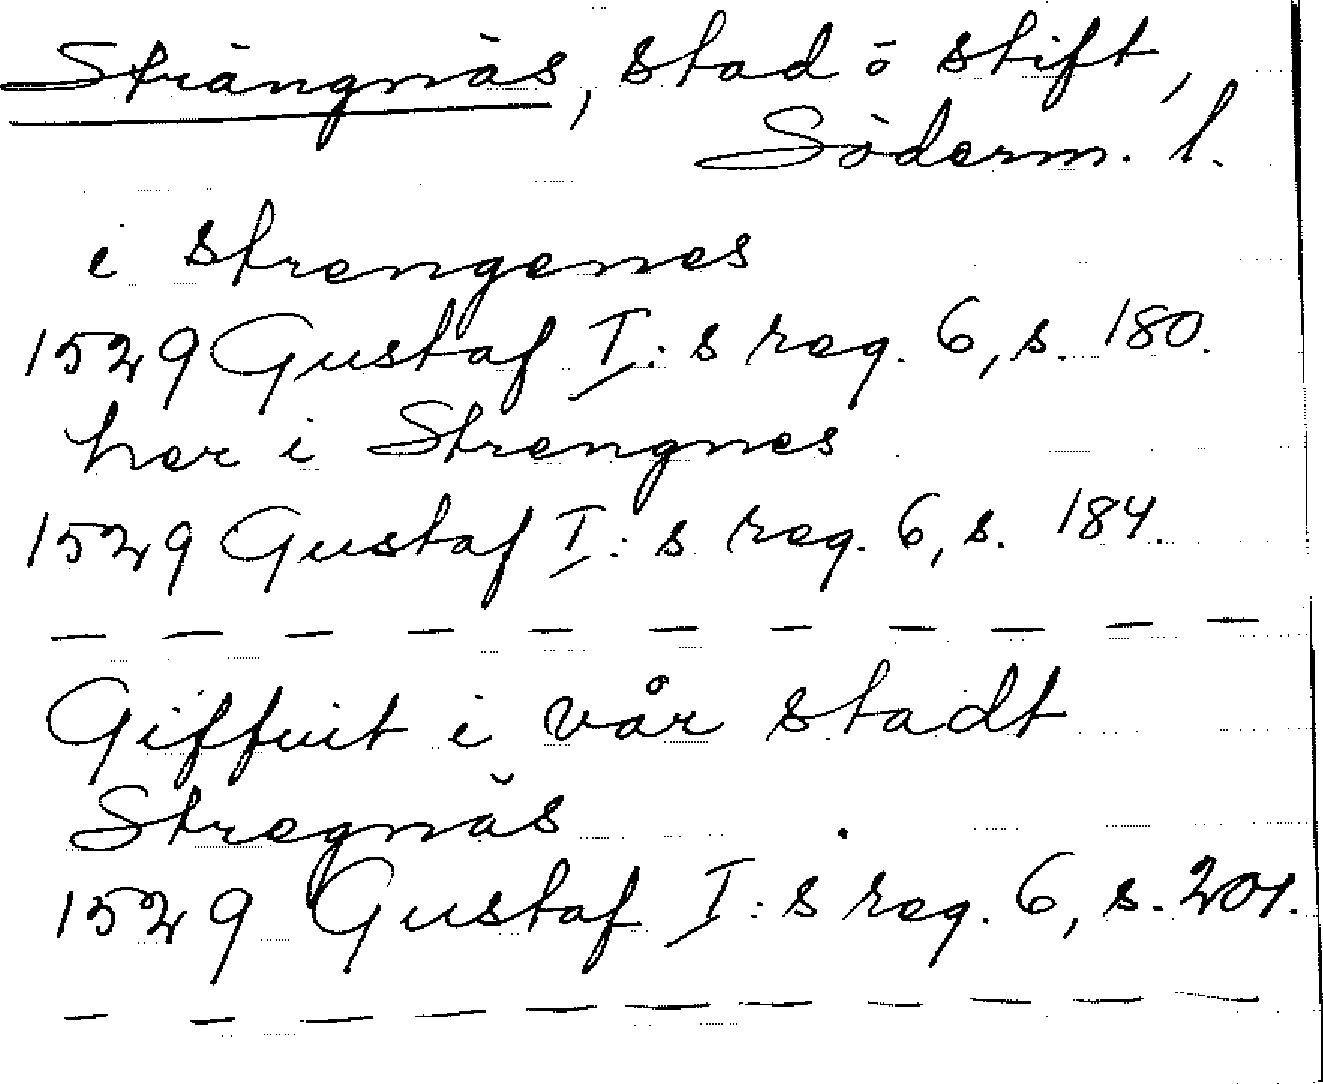 Strängnäs, stad o stift,
Söderm. l.
i Strengenes
1529 Gustaf I:s reg. 6, s. 180.
her i Strengnes
1529 Gustaf I:s reg. 6, s. 184.
Giffuit i vår stadt
Stregnäs
1529 Gustaf I:s reg. 6, s. 201.